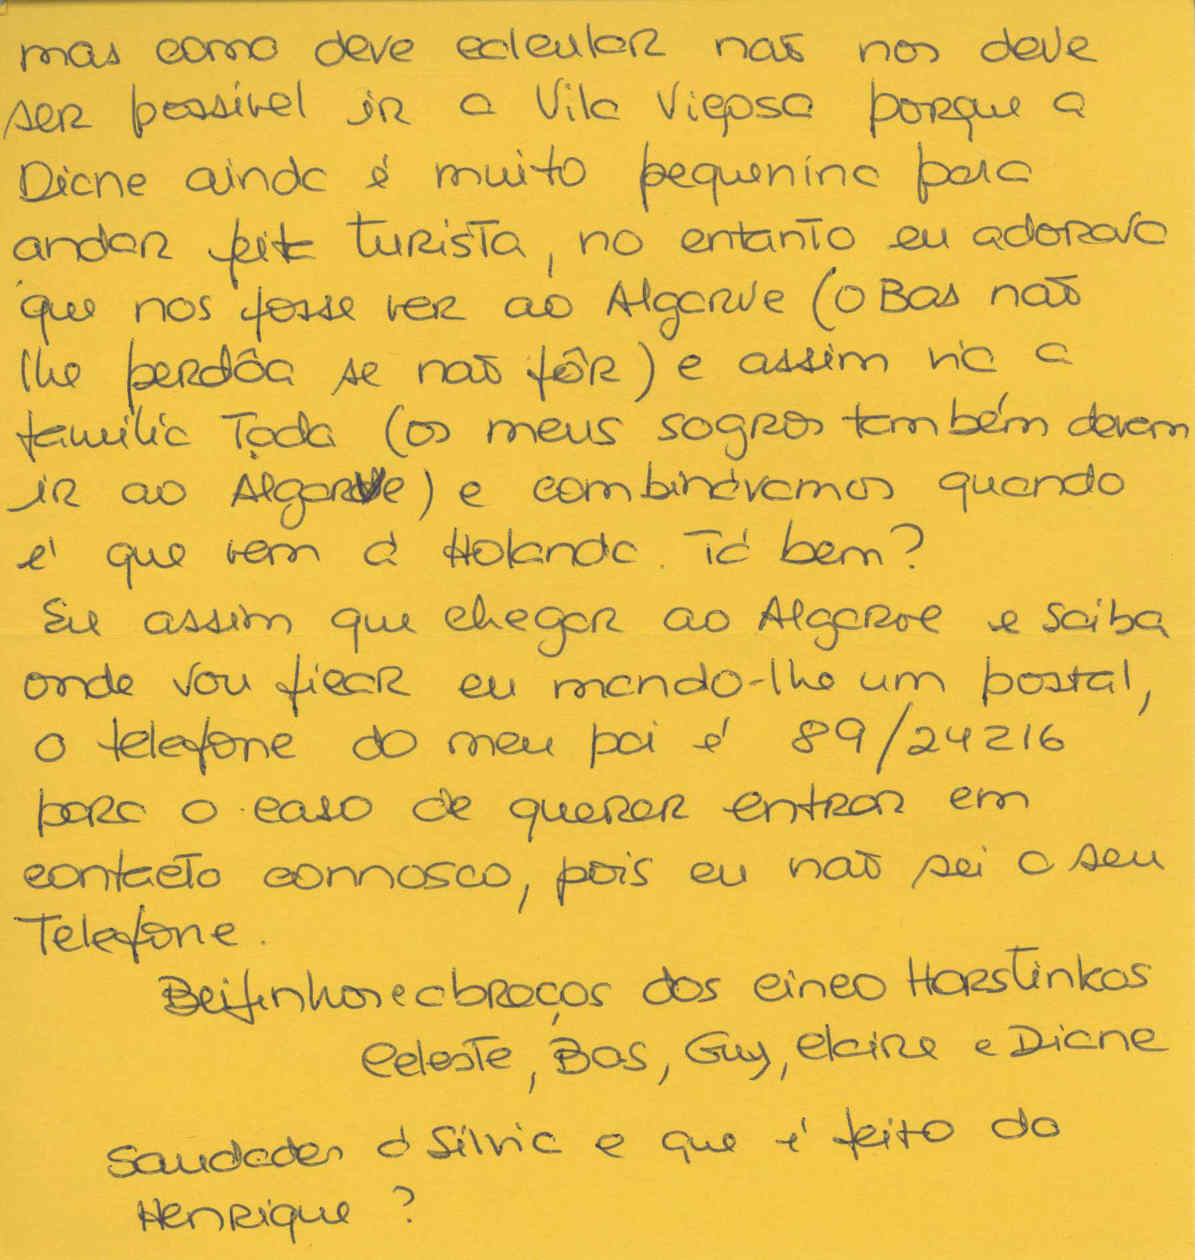 mas como deve calcular não nos deve
ser possível ir a Vila Viçosa porque a
Diane ainda é muito pequenina para
andar feita turista, no entanto eu adorava
que nos fosse ver ao Algarve (o Bas não
lhe perdôa se não fôr) e assim via a
família Toda (os meus sogros também devem
ir ao Algarve) e combinávamos quando
é que vem á Holanda. Tá bem?
Eu assim que chegar ao Algarve e saiba
onde vou ficar eu mando-lhe um postal,
o telefone do meu pai é 89/24216
para o caso de querer entrar em
contacto connosco, pois eu não sei o seu
Telefone.
Beijinhos e abraços dos cinco Harstinkos
Celeste, Bas, Guy, Claire e Diane
Saudades á Sílvia e que é feito do
Henrique?